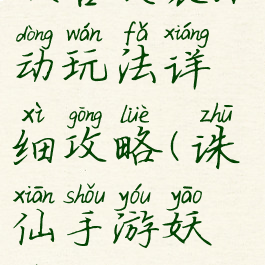 dòng wán fǎ xiáng
动玩法详
xì gōng lüè zhū
细攻略(诛
xiān shǒu yóu yāo
仙手游妖